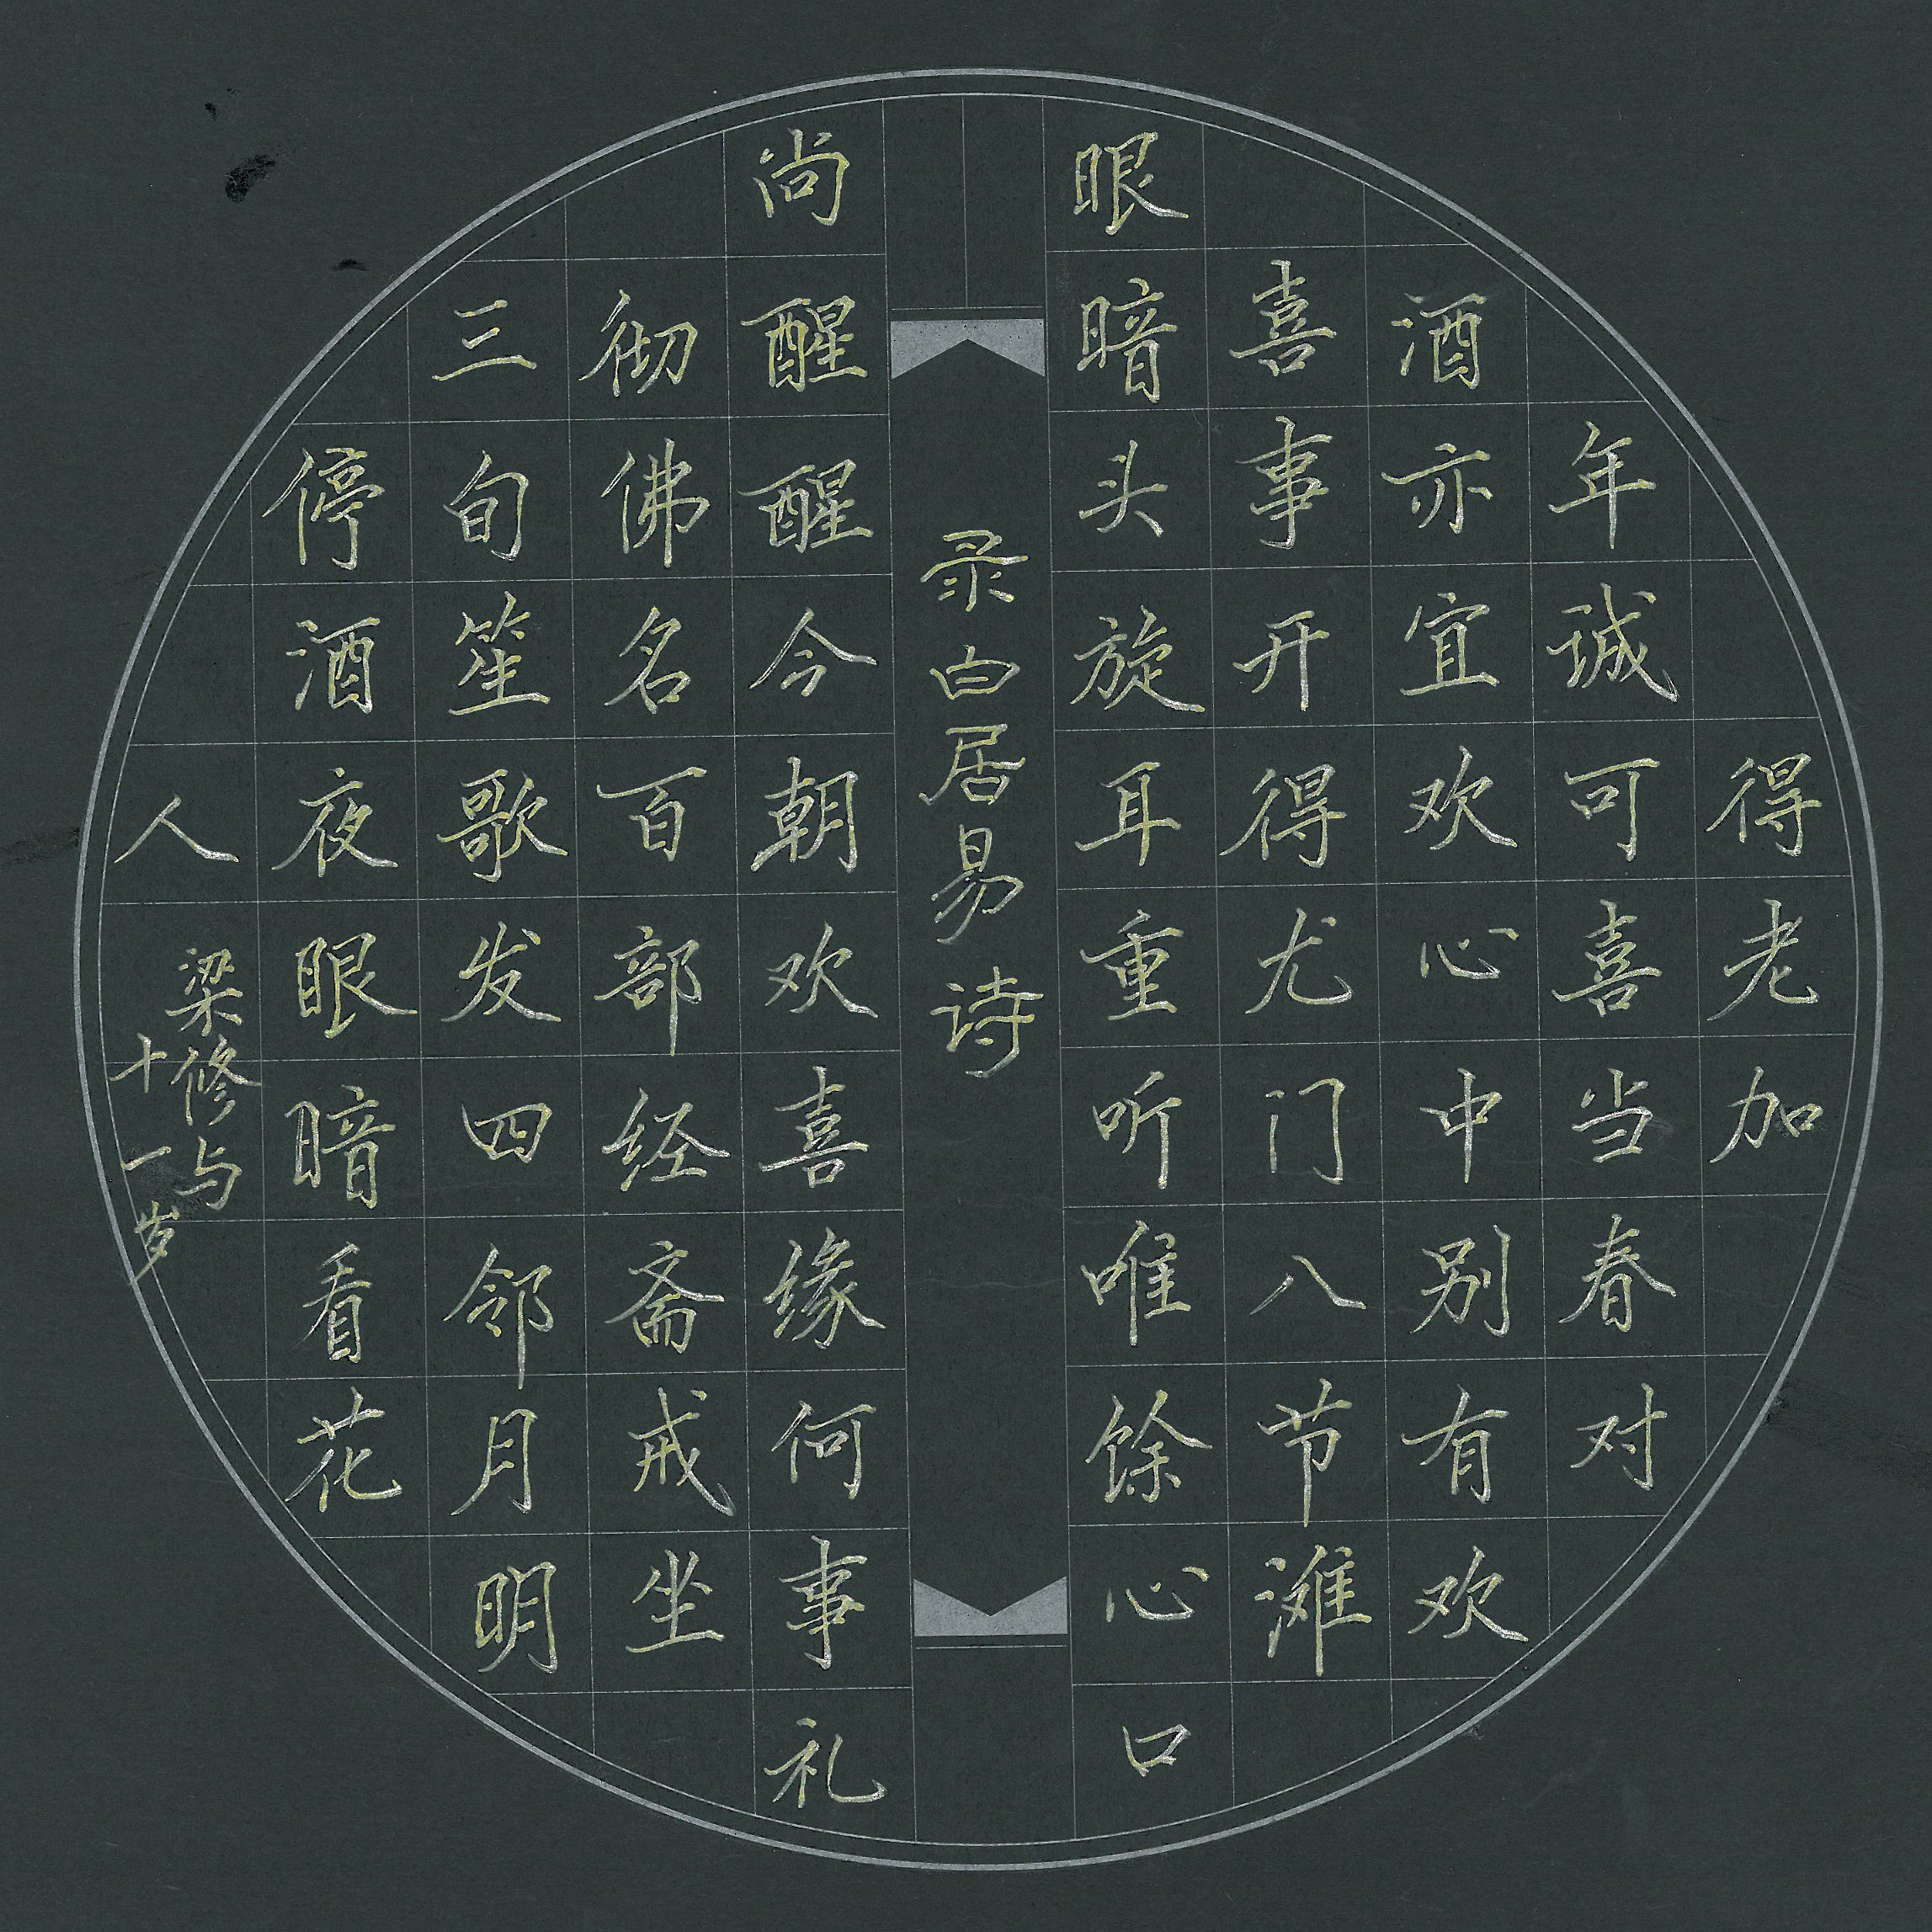 得老加
年诚可喜当春对
酒亦宜欢心中别有欢
喜事开得尤门八节滩
眼暗头旋耳重听唯馀心口
录白居易诗
尚醒醒今朝欢喜缘何事礼
彻佛名百部经斋戒坐
三旬笙歌发四邻月明
停酒夜眼暗看花
人
梁修与
十一岁